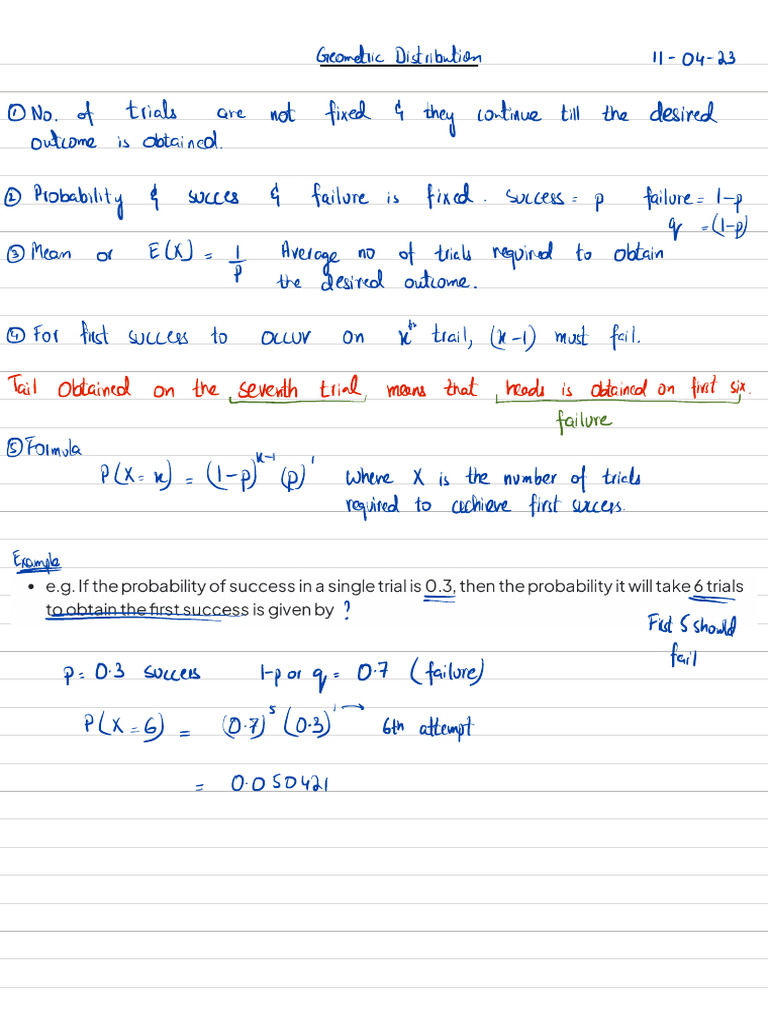 Geometric Distribution 11-04-23
① No. of trials are not fixed & they continue till the desired
outcome is obtained.
② Probability & succes & failure is fixed. success = p failure = 1-p
q = (1-p)
③ Mean or E(X) = 1/p Average no of trials required to obtain
the desired outcome.
④ For first success to occur on xᵗʰ trail, (x-1) must fail.
Tail obtained on the seventh trial, means that heads is obtained on first six.
failure
⑤ Formula
P(X = x) = (1-p)^(x-1) (p)^1 where X is the number of trials
required to acchieve first success.
Example
• e.g. If the probability of success in a single trial is 0.3, then the probability it will take 6 trials
to obtain the first success is given by ?
First 5 should
fail
p = 0.3 success 1-p or q = 0.7 (failure)
P(X = 6) = (0.7)^5 (0.3)^1 → 6th attempt
= 0.050421